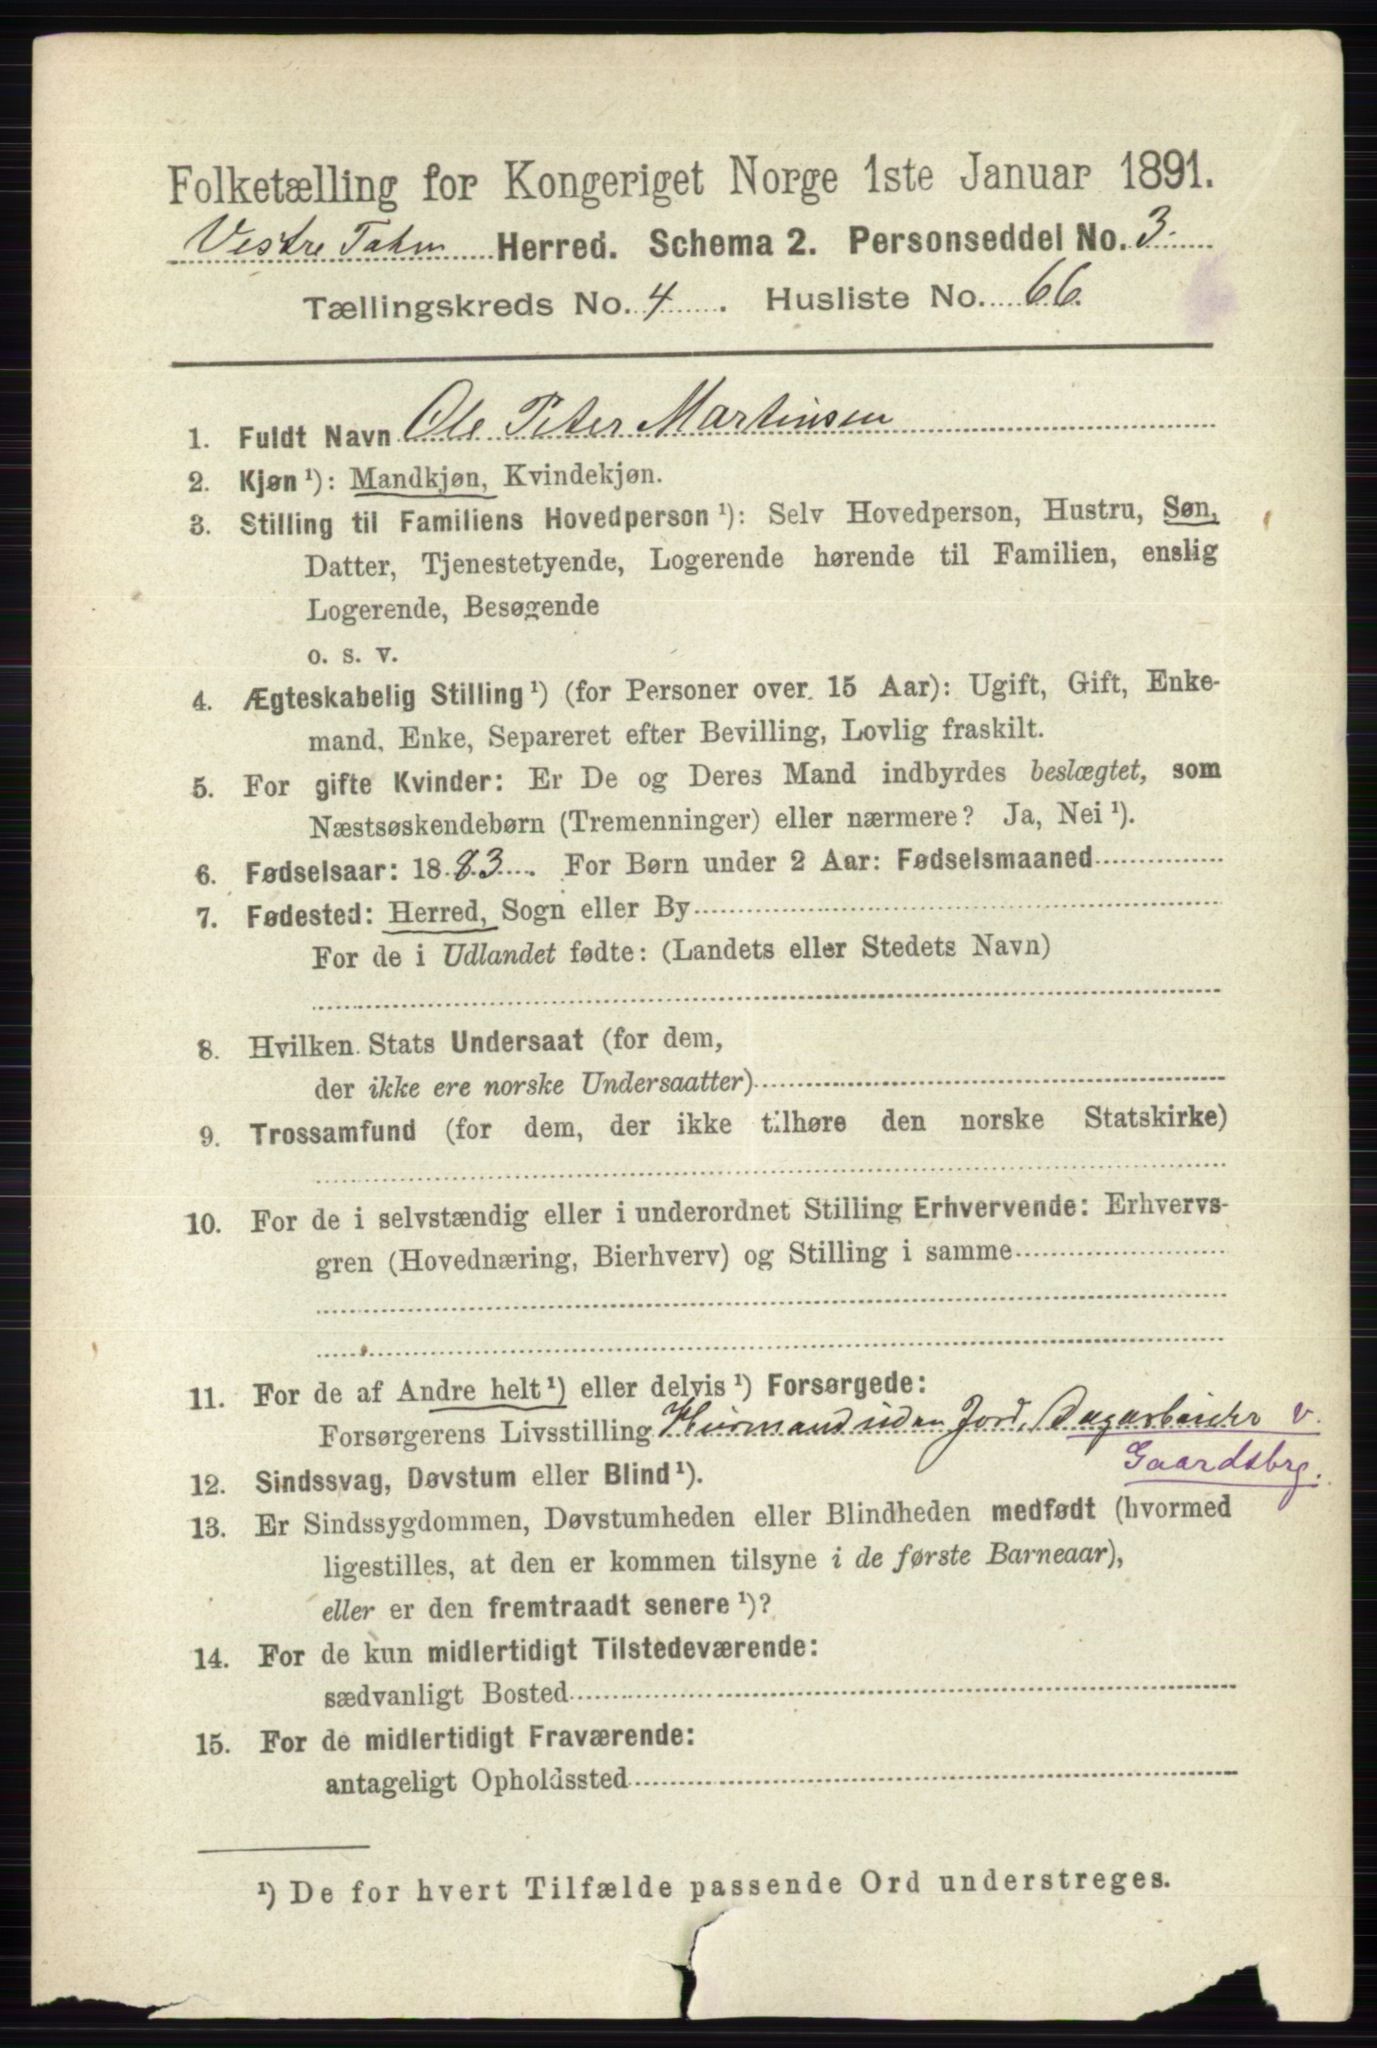 Folketælling for Kongeriget Norge 1ste Januar 1891.
Vestre Toten Herred. Schema 2. Personseddel No. 3.
Tællingskreds No. 4. Husliste No. 66.
1. Fuldt Navn Ole Peter Martinsen
2. Kjøn¹): Mandkjøn, Kvindekjøn.
3. Stilling til Familiens Hovedperson¹): Selv Hovedperson, Hustru, Søn,
Datter, Tjenestetyende, Logerende hørende til Familien, enslig
Logerende, Besøgende
o. s. v.
4. Ægteskabelig Stilling¹) (for Personer over 15 Aar): Ugift, Gift, Enke-
mand, Enke, Separeret efter Bevilling, Lovlig fraskilt.
5. For gifte Kvinder: Er De og Deres Mand indbyrdes beslægtet, som
Næstsøskendebørn (Tremenninger) eller nærmere? Ja, Nei¹).
6. Fødselsaar: 1883. For Børn under 2 Aar: Fødselsmaaned
7. Fødested: Herred, Sogn eller By
For de i Udlandet fødte: (Landets eller Stedets Navn)
8. Hvilken Stats Undersaat (for dem,
der ikke ere norske Undersaatter)
9. Trossamfund (for dem, der ikke tilhøre den norske Statskirke)
10. For de i selvstændig eller i underordnet Stilling Erhvervende: Erhvervs-
gren (Hovednæring, Bierhverv) og Stilling i samme
11. For de af Andre helt¹) eller delvis¹) Forsørgede:
Forsørgerens Livsstilling Huusmand uden Jord, Dagarbeider v.
Gaardsbrg.
12. Sindssvag, Døvstum eller Blind¹).
13. Er Sindssygdommen, Døvstumheden eller Blindheden medfødt (hvormed
ligestilles, at den er kommen tilsyne i de første Barneaar),
eller er den fremtraadt senere¹)?
14. For de kun midlertidigt Tilstedeværende:
sædvanligt Bosted
15. For de midlertidigt Fraværende:
antageligt Opholdssted
¹) De for hvert Tilfælde passende Ord understreges.